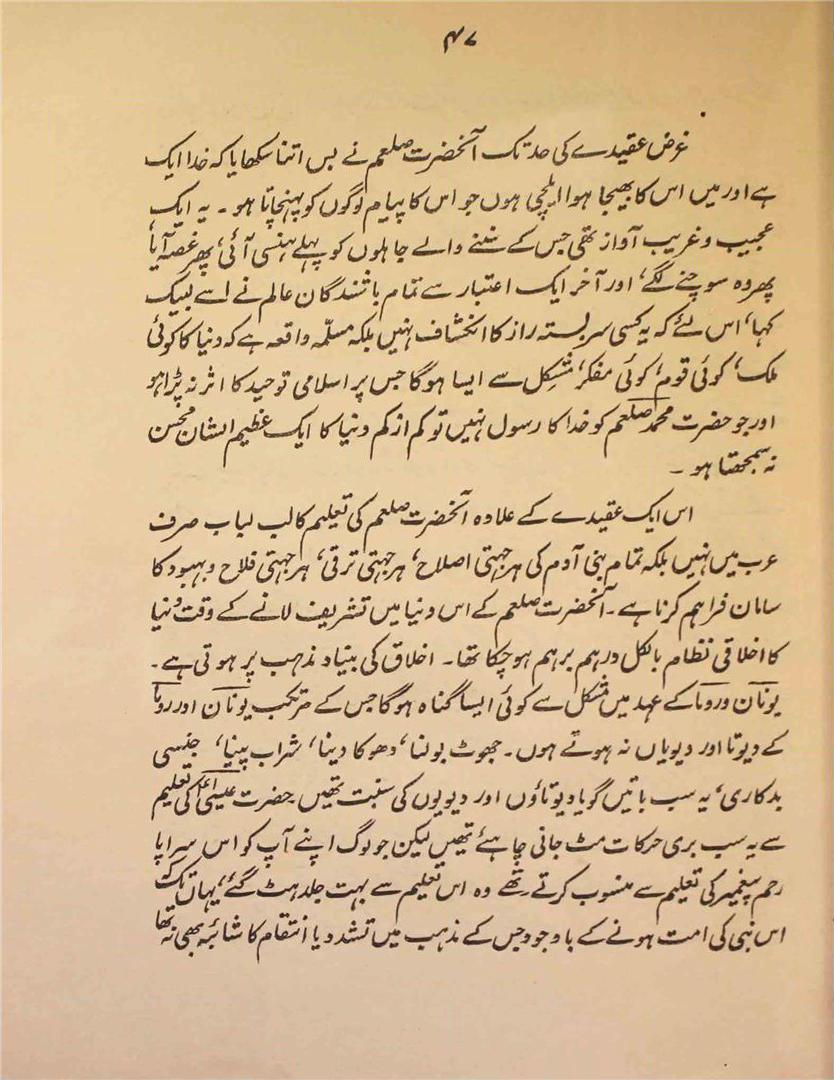 ۴۷
غرض عقیدے کی حد تک آنحضرت صلعم نے بس اتنا سکھایا کہ خدا ایک
ہے اور میں اس کا بھیجا ہوا ایلچی ہوں جو اس کا پیام لوگوں کو پہنچاتا ہو ۔ یہ ایک
عجیب و غریب آواز تھی جس کے سننے والے جاہلوں کو پہلے ہنسی آئی، پھر غصہ آیا،
پھر وہ سوچنے لگے، اور آخر ایک اعتبار سے تمام باشندگان عالم نے اسے لبیک
کہا، اس لئے کہ یہ کسی سربستہ راز کا انکشاف نہیں بلکہ مسلّمہ واقعہ ہے کہ دنیا کا کوئی
ملک، کوئی قوم، کوئی مفکر، مشکل سے ایسا ہوگا جس پر اسلامی توحید کا اثر نہ پڑا ہو
اور جو حضرت محمد صلعم کو خدا کا رسول نہیں تو کم از کم دنیا کا ایک عظیم الشان محسن
نہ سمجھتا ہو ۔
اس ایک عقیدے کے علاوہ آنحضرت صلعم کی تعلیم کا لب لباب صرف
عرب میں نہیں بلکہ تمام بنی آدم کی ہر جہتی اصلاح، ہر جہتی ترقی، ہر جہتی فلاح و بہبود کا
سامان فراہم کرنا ہے ۔ آنحضرت صلعم کے اس دنیا میں تشریف لانے کے وقت دنیا
کا اخلاقی نظام بالکل درہم برہم ہو چکا تھا ۔ اخلاق کی بنیاد مذہب پر ہوتی ہے ۔
یونان و روما کے عہد میں مشکل سے کوئی ایسا گناہ ہوگا جس کے مرتکب یونان اور روما
کے دیوتا اور دیویاں نہ ہوتے ہوں ۔ جھوٹ بولنا، دھوکا دینا، شراب پینا، جنسی
بدکاری، یہ سب باتیں گویا دیوتاؤں اور دیویوں کی سنت تھیں ۔ حضرت عیسیٰؑ کی تعلیم
سے یہ سب بری حرکات مٹ جانی چاہئے تھیں لیکن جو لوگ اپنے آپ کو اس سراپا
رحم پیغمبر کی تعلیم سے منسوب کرتے تھے وہ اس تعلیم سے بہت جلد ہٹ گئے، یہاں تک کہ
اس نبی کی امت ہونے کے باوجود جس کے مذہب میں تشدد یا انتقام کا شائبہ بھی نہ تھا